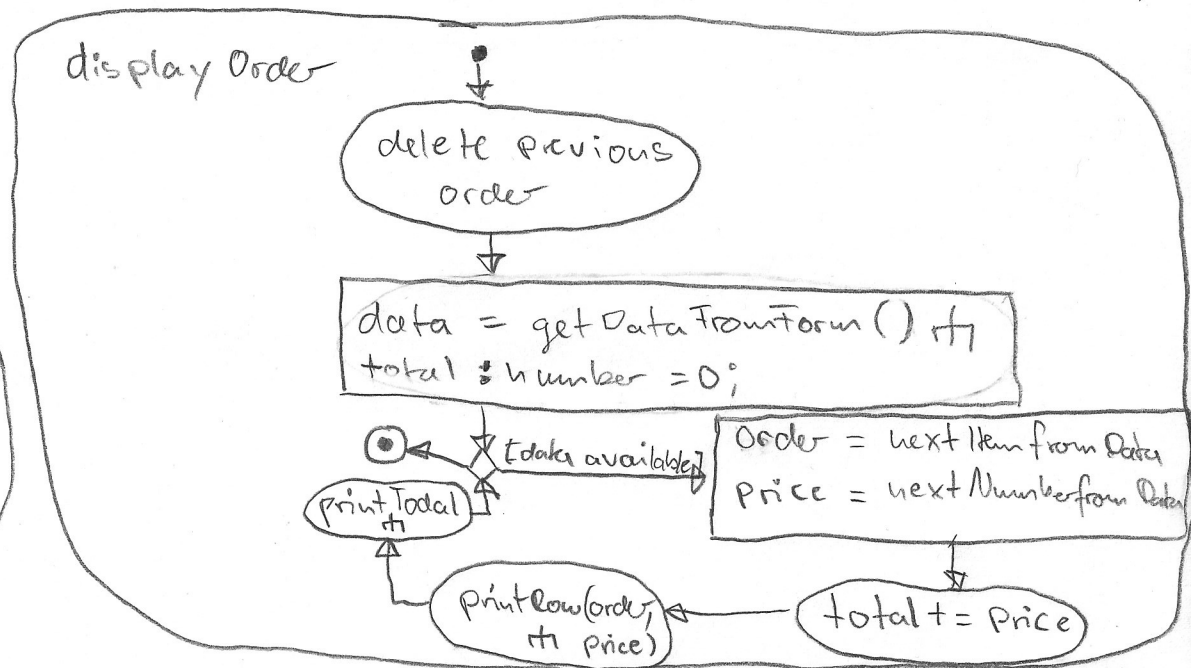 display Order
delete previous
order
data = getDataFromForm()
total : number = 0;
[data available]
order = nextItemfromData
price = nextNumberfromData
printTodal
printRow(order,
price)
total += price